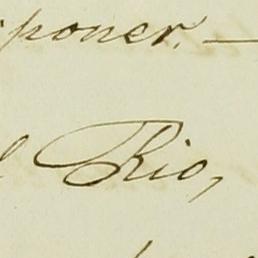 poner. —
Rio,